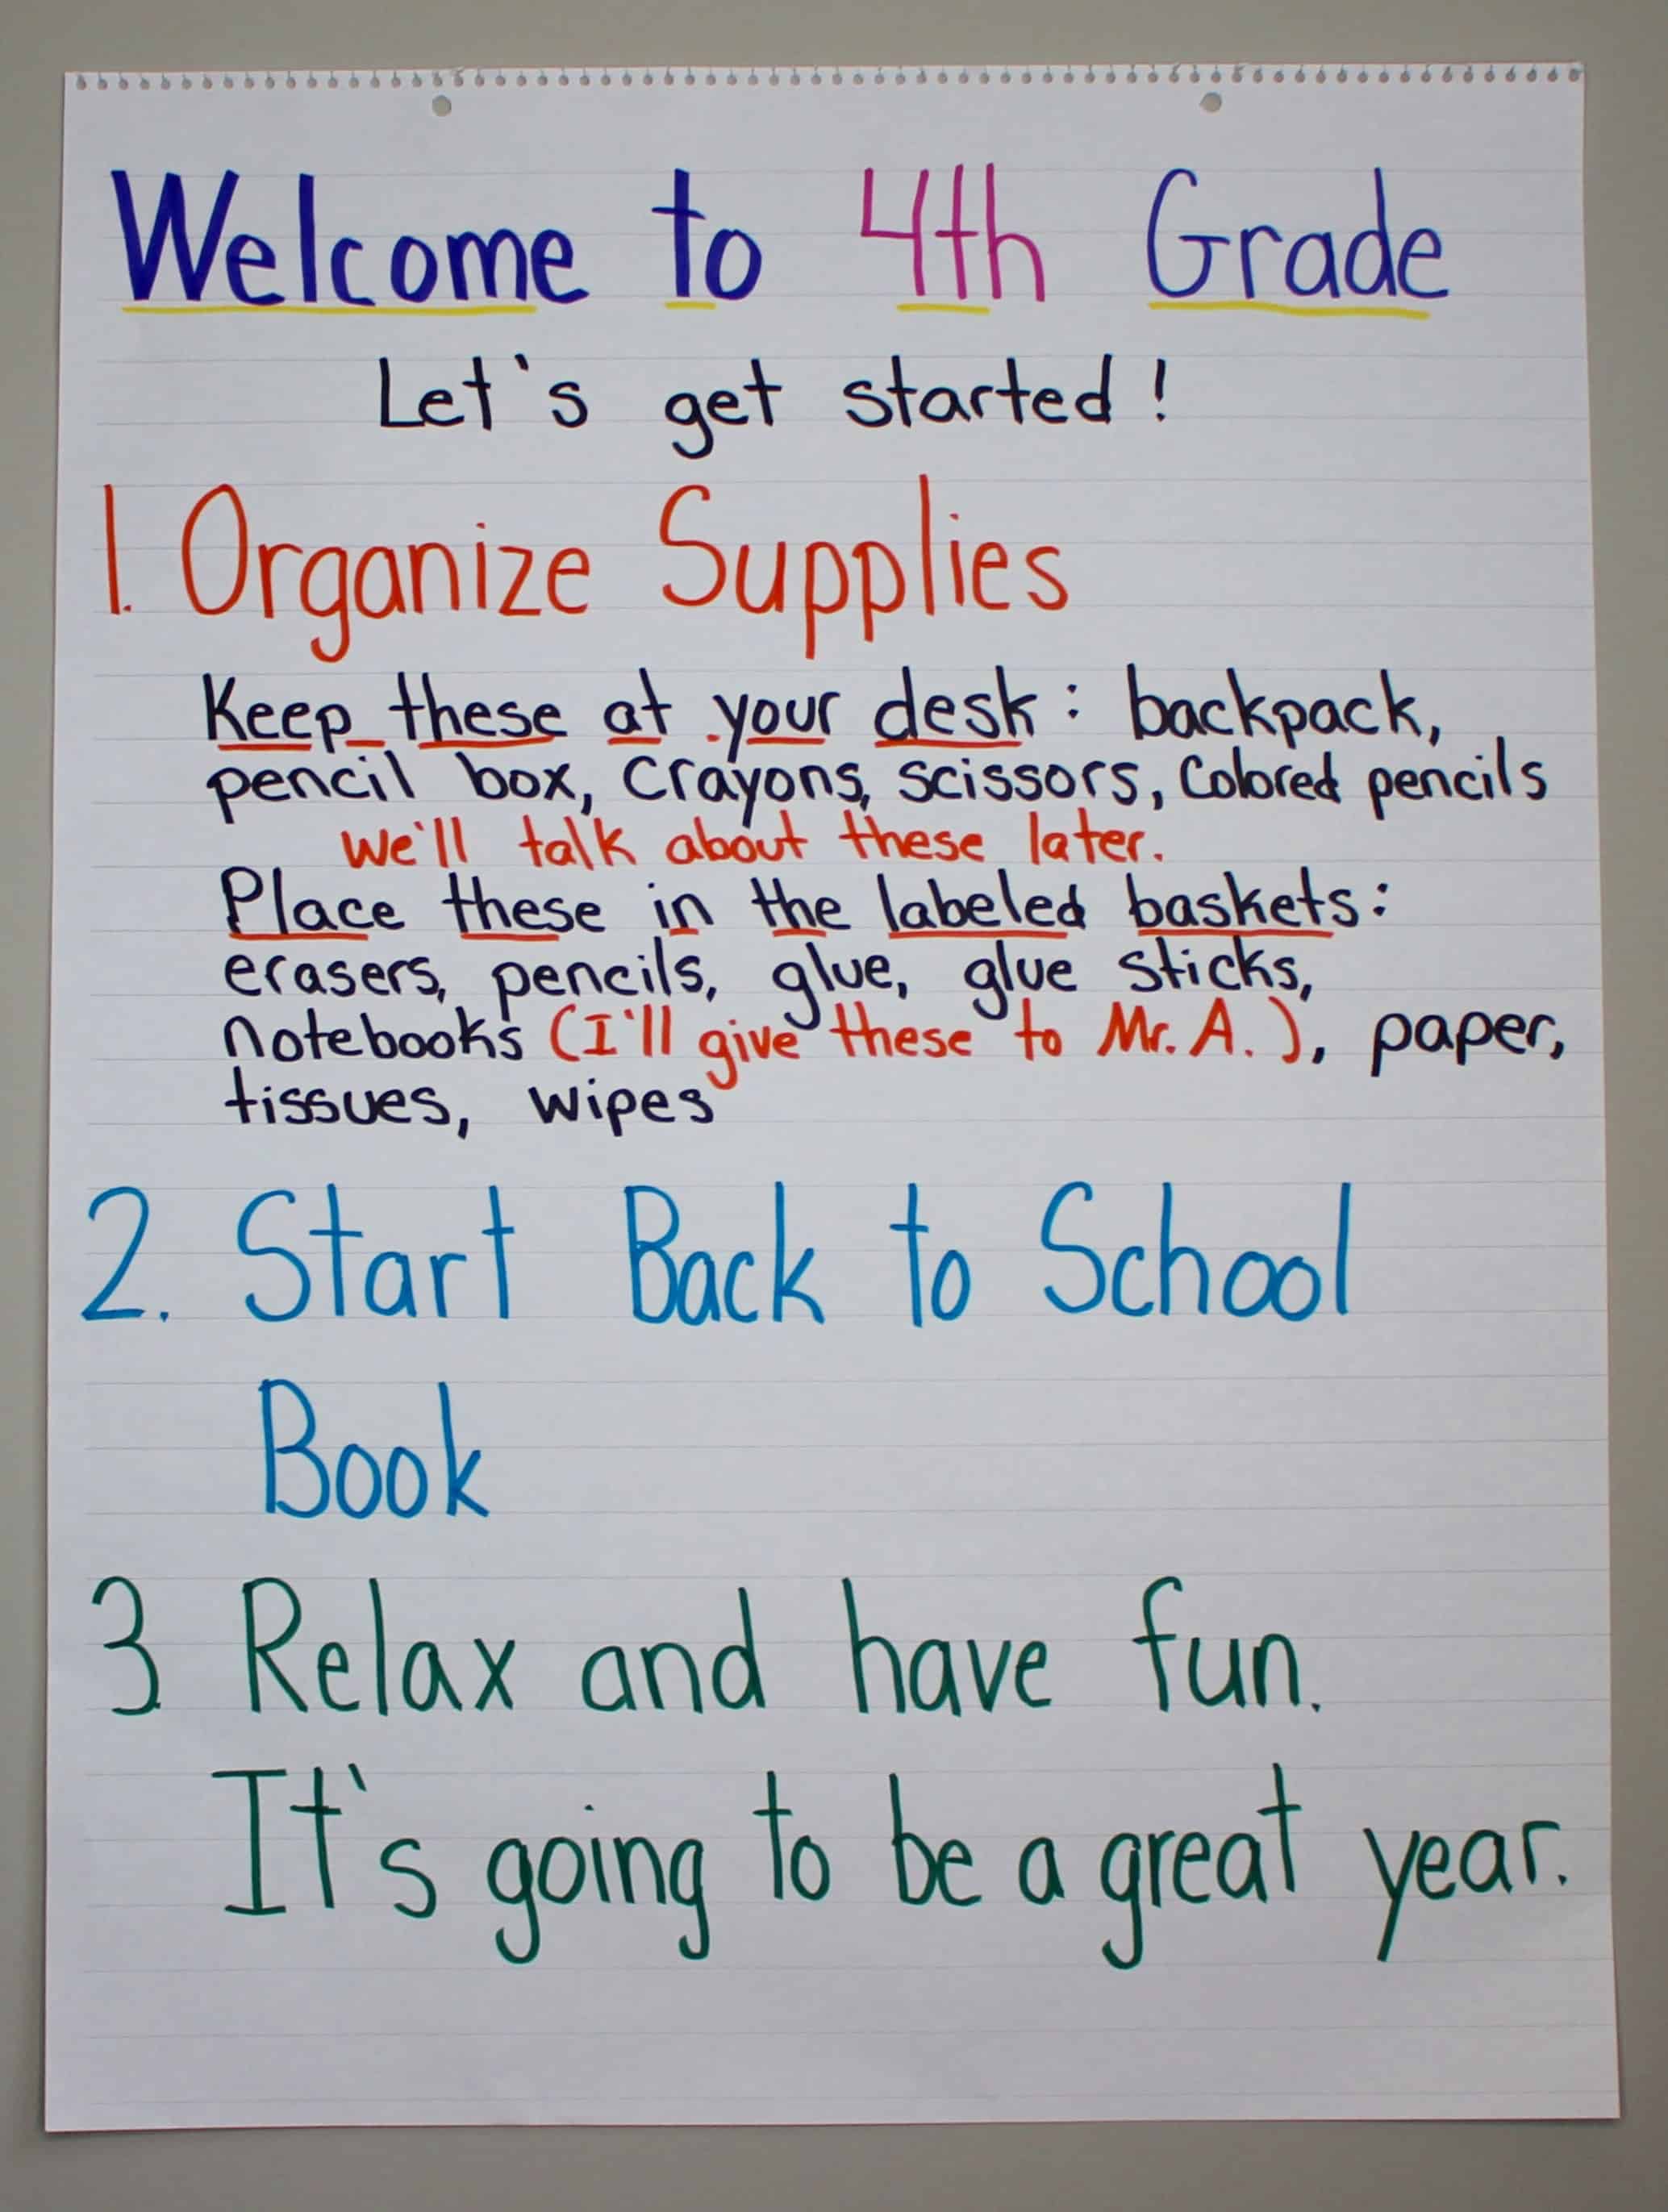 Welcome to 4th Grade
Let's get started!
1. Organize Supplies
Keep these at your desk: backpack,
pencil box, crayons, scissors, Colored pencils
We'll talk about these later.
Place these in the labeled baskets:
erasers, pencils, glue, glue sticks,
notebooks (I'll give these to Mr. A.), paper,
tissues, wipes
2. Start Back to School
Book
3 Relax and have fun.
It's going to be a great year.